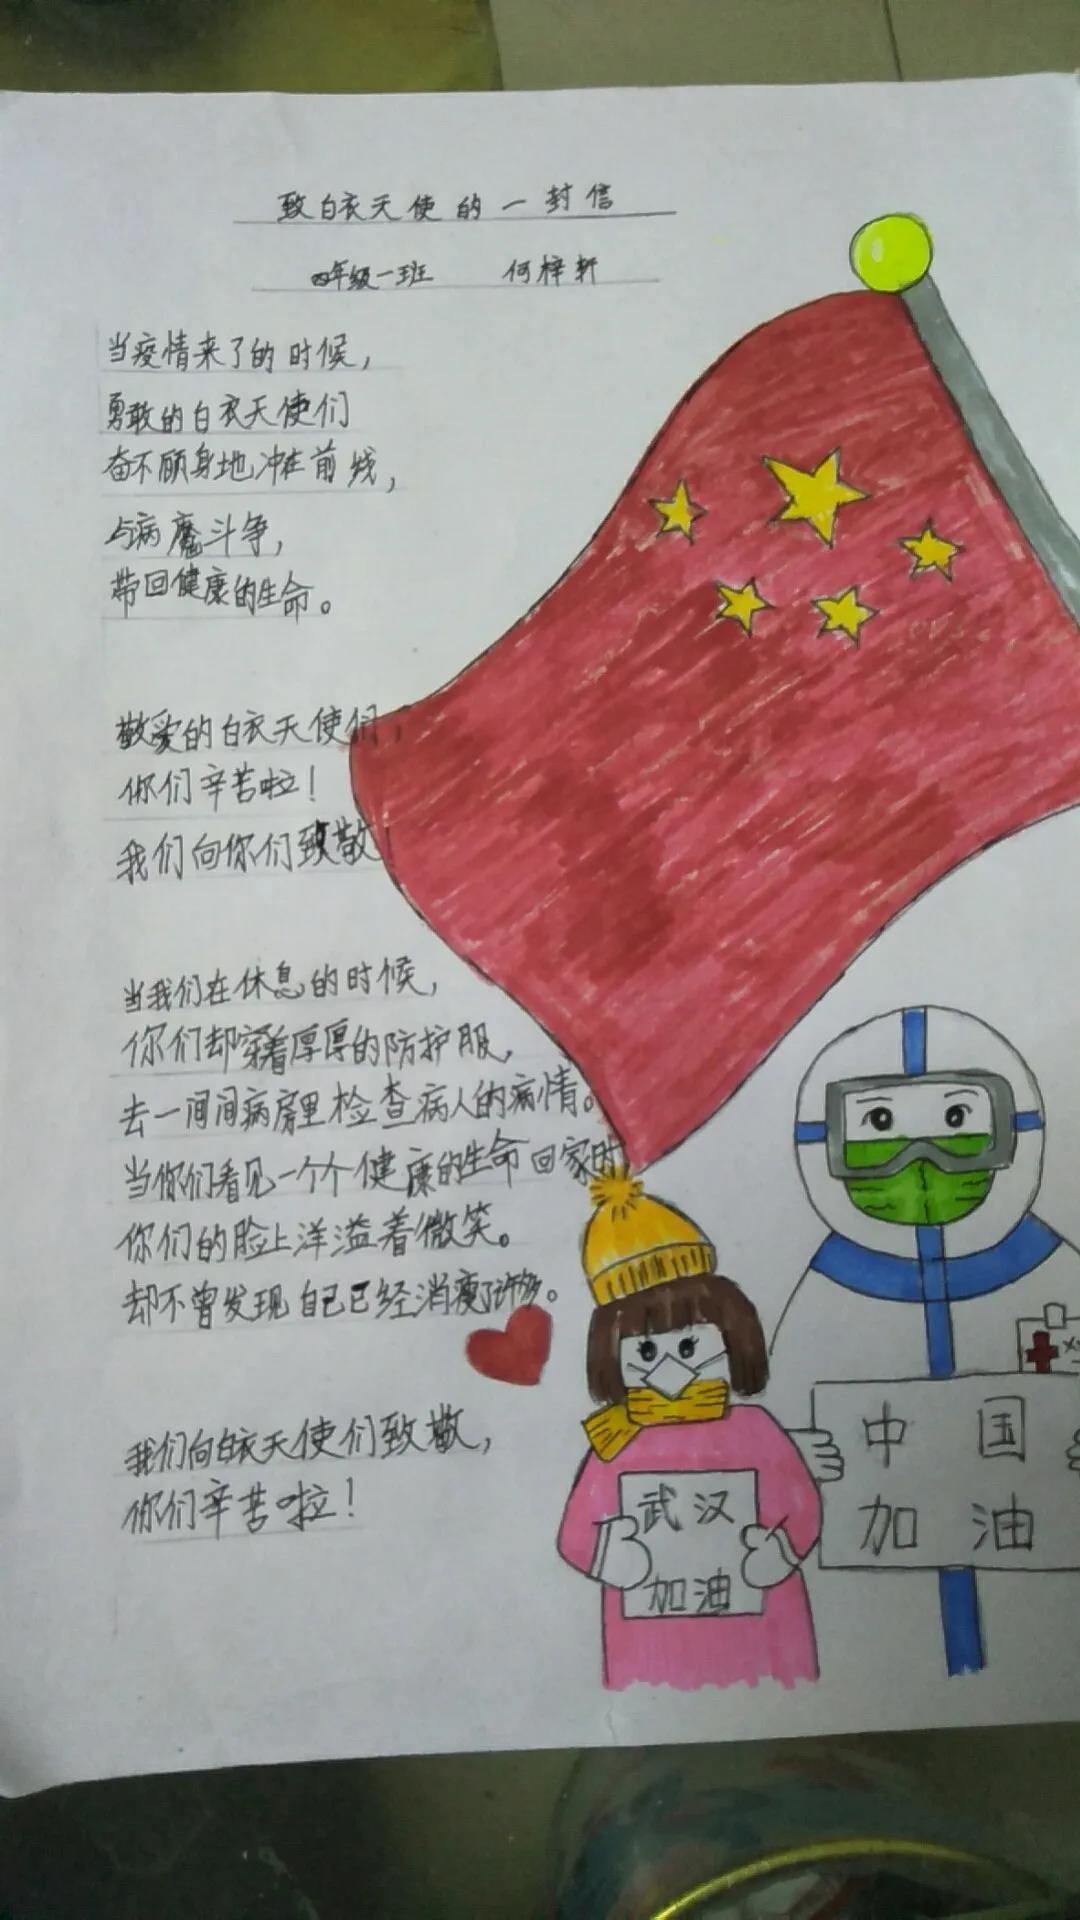 致白衣天使的一封信
四年级一班 何梓轩
当疫情来了的时候，
勇敢的白衣天使们
奋不顾身地冲在前线，
与病魔斗争，
带回健康的生命。
敬爱的白衣天使们，
你们辛苦啦！
我们向你们致敬！
当我们在休息的时候，
你们却穿着厚厚的防护服，
去一间间病房里检查病人的病情。
当你们看见一个个健康的生命回家时
你们的脸上洋溢着微笑。
却不曾发现自己已经消瘦了许多。
我们向白衣天使们致敬，
你们辛苦啦！
中国
加油
武汉
加油